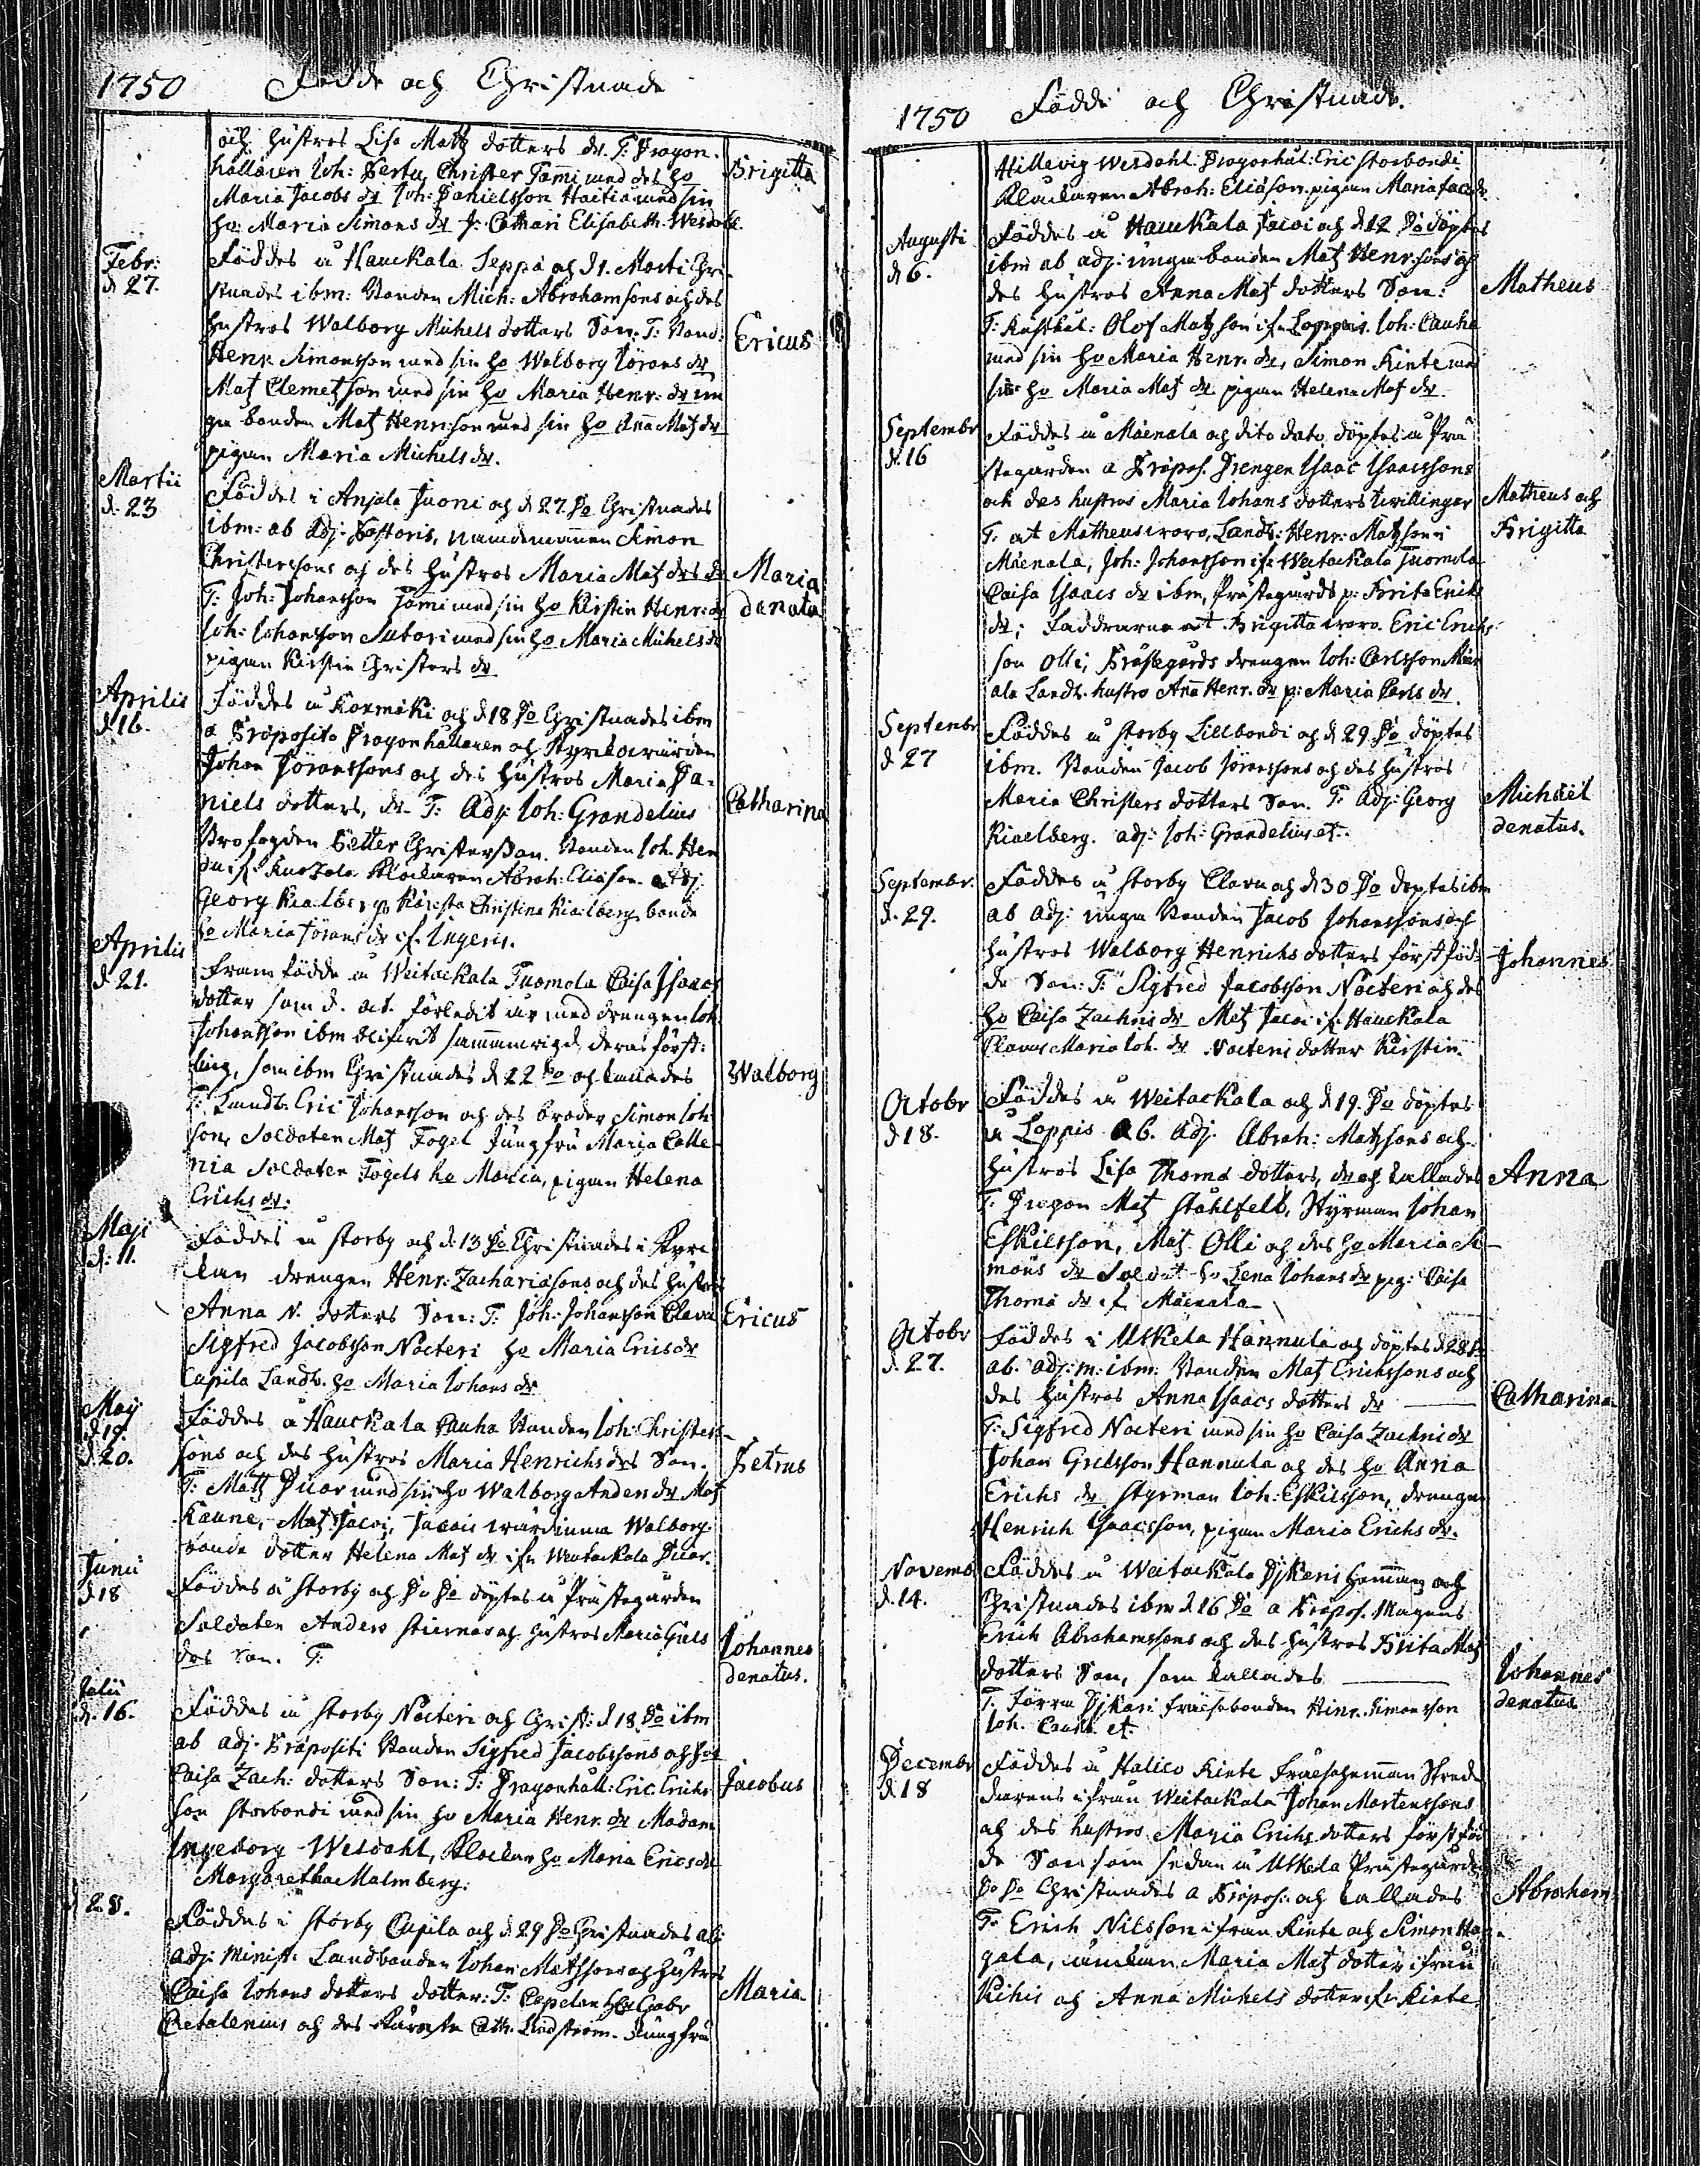 1750 Födde och Christnade
och hustros Lisa Matz dotters dr. T: Dragon-
hållaren Joh: Pertu, Christer Tami med des ho
Brigitta
Maria Jacobs dr Joh: Danielsson Haitia med sin
ho: Maria Simons dr J: Cathari Elisabeth Wesdahl.
Febr:
d 27.
Föddes i Hauckala Seppä och d 1. Marti Chri-
stnades ibm: Bonden Mich: Abrahamsons och des
hustros Walborg Michels dotters Son. T: Bond:
Ericus
Henr. Simonsson med sin ho Walborg Jörans dr
Matz Clemetzson med sin ho Maria Henr. dr un
ga bonden Matz Henr:son med sin ho Anna Matz dr
pigan Maria Michels dr.
Martii
d. 23
Föddes i Anjala Juoni och d 27. Do Christnades
ibm: ab Adj: Pastoris, nämdemannen Simon
Christerssons och des hustros Maria Matz drs dr
Maria
denata
T: Joh: Johansson Tami med sin ho Kirstin Henr: dr
Joh: Johansson Sutari med sin ho Maria Michels dr
pigan Kirstin Christers dr
Aprilis
d 16.
Föddes i Konmäki och d 18 Do Christnades ibm
a Præposito Dragonhållaren och Kyrckowärden
Johan Göranssons och des hustros Maria Da-
niels dotters, dr T: Adj: Joh: Grandelius
Catharina
Brofogden Petter Christersson. Bonden Joh. Hen
Klockaren Abrah: Eliæson. Adj.
Georg Kialberg Käresta Christina Kialberg, bonde
ho Maria Jörans dr if. Ingeris.
Aprilis
d 21.
Framfödde i Weitackala Tuomola Caisa Isaacs
dotter som d. förledit åhr med drengen Joh.
Johansson ibm blifwit sammanwigd, deras först-
ling, som ibm Christnades d 22 Do och kallades
Walborg
T. Landb. Eric Johansson och des broder Simon Joh.
son, Soldaten Matz Fogel Jungfru Maria Calle-
nia Soldaten Fogels ho Maria, pigan Helena
Erichs dr.
Maji
d: 11.
Föddes i Storby och d. 13 Do Christnades i Kyrc-
kan drengen Henr: Zachariæsons och des hustros
Anna N. dotters Son: T: Joh: Johansson Clavu
Ericus
Sigfred Jacobsson Nocteri ho Maria Erics dr
Cupila Landb. ho Maria Johans dr
Maij
d 19.
d 20.
Föddes i Hauckala Cauha Bonden Joh: Christers-
sons och des hustros Maria Henrichs drs Son.
Petrus
T: Matz Ducar med sin ho Walborg Anders dr Matz
Kaune, Matz Jacoi, Jacois wärdinna Walborg
bonde dotter Helena Matz dr ifr. Weitackala
Junii
d 18
Föddes i Storby och Do Do döptes i Prästegården
Soldaten Anders Stiernas och hustros Maria Grels
drs Son. T:
Johannes
denatus.
Julii
d. 16.
Föddes i Storby Nocteri och Christ: d 18 Do ibm
ab adj. Præpositi Bonden Sigfred Jacobssons och hos
Caisa Zach: dotters Son: T: Dragonhåll: Eric Erichs-
Jacobus
son Storbondi med sin ho Maria Henr. dr Madam
Ingeborg Wesdahl, Klockar ho Maria Erics dr
Margaretha Malmberg.
d 28.
Föddes i Storby Cupila och d. 29 Do Christnades ab.
adj: Minist: Landbonden Johan Matzsons och hustros
Caisa Johans dotters dotter: T: Capelan Gabr
Maria
Cretalenius och des Käresta Cath. Lindström. Jungfru
1750 Födde och Christnade.
Hillevig Wesdahl. Dragonhål: Eric Storbondi
Klockaren Abrah: Eliæson. pigan Maria Jacobs dr
Augusti
d 6.
Föddes i Hauckala Jacoi och d 12 Do döptes
ibm ab adj: unga bonden Matz Henr:sons och
des hustros Anna Matz dotters Son:
Matheus
T: Rusthål: Olof Matzson ifr. Loppis. Joh: Cauha
med sin ho Maria Henr. dr, Simon Kinte med
sin ho Maria Matz dr pigan Helena Matz dr.
Septembr
d. 16
Föddes i Mäenala och dito dato döptes i Prä
stegården a Præpos. Drengen Isaac Isaacssons
och des hustros Maria Johans dotters twillingar
Matheus och
Brigitta
T. at Matheus woro, Landb: Henr: Matzson i
Mäenala, Joh: Johansson if. Weitackala Tuomola
Caisa Isaacs dr ibm, Prästegårds p: Brita Erichs
dr; Faddrarna at Brigitta woro Eric Erichs
son Olli, Prästegårds drengen Joh: Carlsson Mäen
ala Landb. hustro Ana Henr. dr p: Maria Carls dr.
Septembr
d 27
Föddes i Storby Lillbondi och d 29. Do döptes
ibm. Bonden Jacob Jöranssons och des hustros
Maria Christers dotters Son. T: Adj: Georg
Michaël
denatus.
Kiaelberg. adj: Joh: Grandelius et.
Septembr.
d. 29.
Föddes i Storby Clavu och d 30 Do döptes ibm
ab adj: unga Bonden Jacob Johanssons och
hustros Walborg Henrichs dotters först föd-
Johannes
de Son: T: Sigfred Jacobsson Nocteri och des
ho Caisa Zachris dr Matz Jacoi if. Hauckala
Clavus Maria Joh. dr Nocteris dotter Kirstin.
Octobr
d 18.
Föddes i Weitackala och d 19. Do döptes
i Loppis ab. adj. Abrah: Matzsons och
hustros Lisa Thomæ dotters, dr och kallades
Anna
T. Dragon Matz Stählfelt, Styrman Johan
Eskilsson, Matz Olli och des ho Maria Si-
mons dr Soldat ho Lena Johans dr pig: Caisa
Thomæ dr if Mäenala
Octobr
d. 27.
Föddes i Uskela Hannula och döptes d 28 Do
ab. adj: m: ibm. Bonden Matz Erichssons och
des hustros Anna Isaacs dotters dr
Catharina
T: Sigfred Nocteri med sin ho Caisa Zachris dr
Johan Grelsson Hannula och des ho Anna
Erichs dr Styrman Joh: Eskilsson, drengen
Henrich Isaacsson, pigan Maria Erichs dr.
Novemb.
d. 14.
Föddes i Weitackala Djkeri hemman och
Christnades ibm d 16 Do a Præpos. Magnus
Erich Abrahamssons och des hustros Brita Matz
dotters Son, som kallades
Johannes
denatus
T. Förra Djkari frälsebonden Henr. Simonsson
Joh. et.
Decembr
d 18
Föddes i Halico Kinte Frälsehemman
ifrån Weitackala Johan Martenssons
och des hustros Maria Erichs dotters först föd
de Son som sedan i Uskela Prästegård
Do Do Christnades a Præpos: och kallades
Abraham
T. Erich Nilsson ifrån Kinte och Simon
gala, änckan Maria Matz dotter ifrån
Kihis och Anna Michels dotter ifr. Kinte.